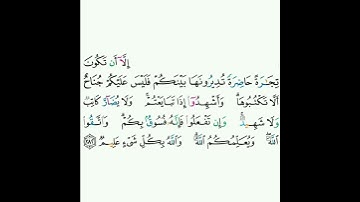 إِلَّآ أَن تَكُونَ
تِجَـٰرَةً حَاضِرَةً تُدِيرُونَهَا بَيْنَكُمْ فَلَيْسَ عَلَيْكُمْ جُنَاحٌ
أَلَّا تَكْتُبُوهَا ۗ وَأَشْهِدُوٓا۟ إِذَا تَبَايَعْتُمْ ۚ وَلَا يُضَآرَّ كَاتِبٌ
وَلَا شَهِيدٌ ۚ وَإِن تَفْعَلُوا۟ فَإِنَّهُۥ فُسُوقٌۢ بِكُمْ ۗ وَٱتَّقُوا۟
ٱللَّهَ ۖ وَيُعَلِّمُكُمُ ٱللَّهُ ۗ وَٱللَّهُ بِكُلِّ شَىْءٍ عَلِيمٌ ﴿٢٨٢﴾